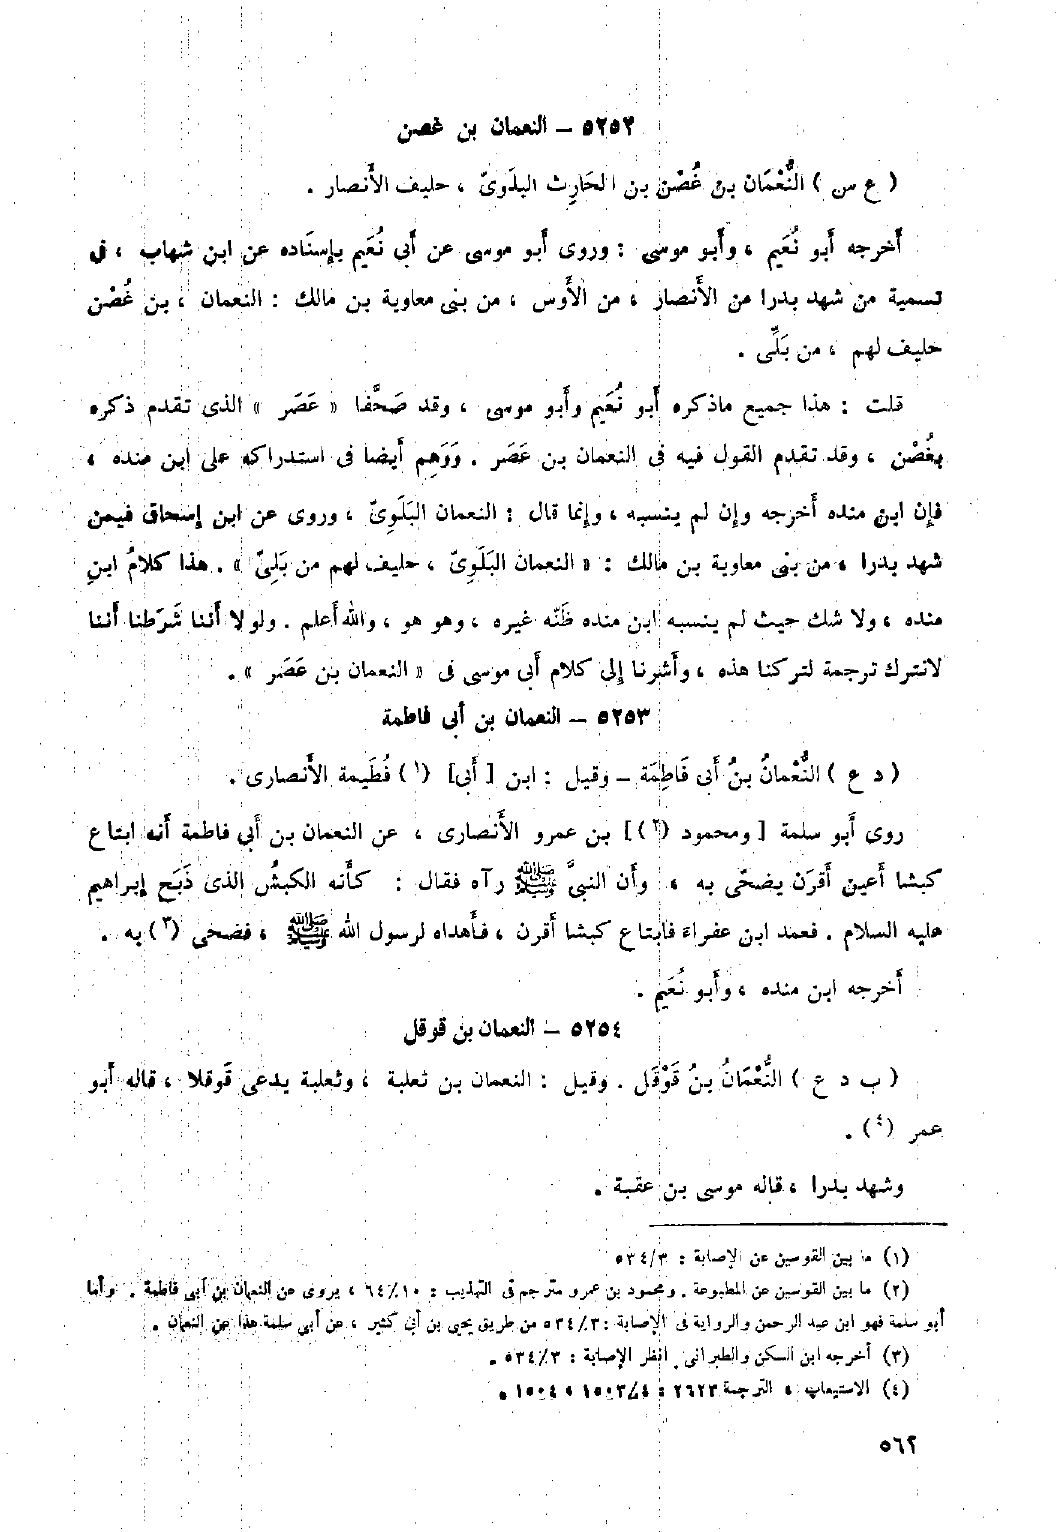 ٥٢٥٢ – النعمان بن غصن
( ع س ) النُّعْمَان بن غُصْن بن الحَارِث البلَوىّ ، حليف الأَنصار .
أَخرجه أَبو نُعَيم ، وأَبو موسى : وروى أَبو موسى عن أَبى نُعَيم بإِسنَاده عن ابن شهاب ، فى
تسمية من شهد بدرا من الأَنصار ، من الأَوس ، من بنى معاوية بن مالك : النعمان ، بن غُصْن
حليف لهم ، من بَلِّى .
قلت : هذا جميع ماذكره أَبو نُعَيم وأَبو موسى ، وقد صَحَّفا « عَصَر » الذى تقدم ذكره
بغُصْن ، وقد تقدم القول فيه فى النعمان بن عَصَر . وَوَهِم أَيضا فى استدراكه على ابن منده ،
فإِن ابن منده أَخرجه وإِن لم ينسبه ، وإِنما قال : النعمان البَلَوِىّ ، وروى عن ابن إِسحاق فيمن
شهد بدرا ، من بنى معاوية بن مالك : « النعمان البَلَوِىّ ، حليف لهم من بَلِىّ » . هذا كلامُ ابنِ
منده ، ولا شك حيث لم ينسبه ابن منده ظَنّه غيره ، وهو هو ، والله أَعلم . ولولا أَننا شَرَطنا أَننا
لانترك ترجمة لتركنا هذه ، وأَشرنا إِلى كلام أَبى موسى فى « النعمان بن عَصَر » .
٥٢٥٣ – النعمان بن أبى فاطمة
( د ع ) النُّعْمانُ بنُ أَبى فَاطِمَة – وقيل : ابن [ أَبى] (١) فُطَيمة الأَنصارى .
روى أَبو سلمة [ ومحمود (٢)] بن عمرو الأَنصارى ، عن النعمان بن أَبى فاطمة أَنه ابتاع
كبشا أَعين أَقرَن يضحّى به ، وأَن النبىَّ ﷺ رآه فقال : كأَنه الكبشُ الذى ذَبَح إِبراهيم
عليه السلام . فعمد ابن عفراءَ فابتاع كبشا أَقرن ، فأَهداه لرسول الله ﷺ ، فضحى (٣) به .
أَخرجه ابن منده ، وأَبو نُعَيم .
٥٢٥٤ – النعمان بن قوقل
( ب د ع ) النُّعْمَانُ بنُ قَوْقَل . وقيل : النعمان بن ثعلبة ، وثعلبة يدعى قَوقلا ، قاله أَبو
عمر (٤) .
وشهد بدرا ، قاله موسى بن عقبة .
(١) ما بين القوسين عن الإصابة : ٥٣٤/٣
(٢) ما بين القوسين عن المطبوعة . ومحمود بن عمرو مترجم فى التهذيب : ٦٤/١٠ ، يروى عن النعمان بن أبى فاطمة . وأما
أبو سلمة فهو ابن عبد الرحمن والرواية فى الإصابة : ٥٣٤/٣ من طريق يحيى بن أبى كثير ، عن أبى سلمة هذا عن النعمان .
(٣) أخرجه ابن السكن والطبرانى . انظر الإصابة : ٥٣٤/٣ .
(٤) الاستيعاب ، الترجمة ٢٦٢٣ : ١٥٠٣/٤ ، ١٥٠٤ .
٥٦٢